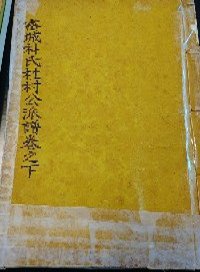 密城朴氏杜村公派譜卷之下